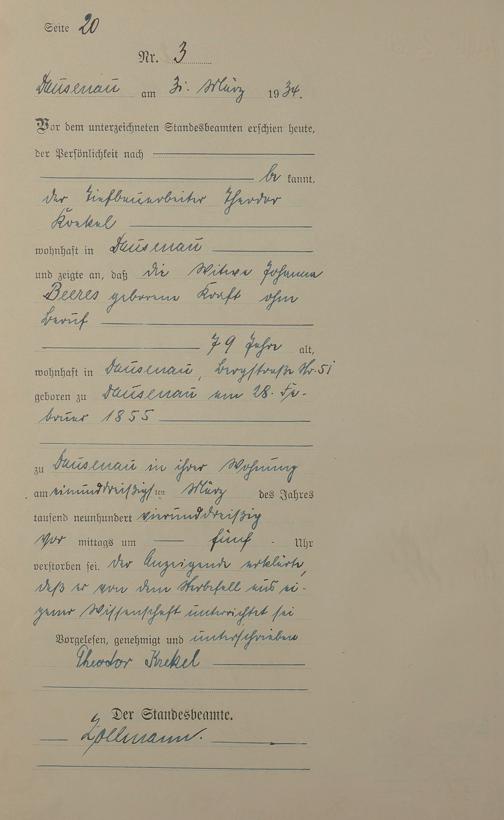 Seite 20
Nr. 3
Dausenau am 31. März 1934.
Vor dem unterzeichneten Standesbeamten erschien heute,
der Persönlichkeit nach
be kannt,
der Tiefbauarbeiter Theodor
Krekel
wohnhaft in Dausenau
und zeigte an, daß die Witwe Johanna
Beeres geborene Kraft ohne
Beruf
79 Jahre alt,
wohnhaft in Dausenau, Bergstraße Nr. 51
geboren zu Dausenau am 28. Fe-
bruar 1855
zu Dausenau in ihrer Wohnung
am einunddreißigsten März des Jahres
tausend neunhundert vierunddreißig
vor mittags um fünf Uhr
verstorben sei. Der Anzeigende erklärte,
daß er von dem Sterbefall aus ei-
gener Wissenschaft unterrichtet sei
Vorgelesen, genehmigt und unterschrieben
Theodor Krekel
Der Standesbeamte.
Zollmann.